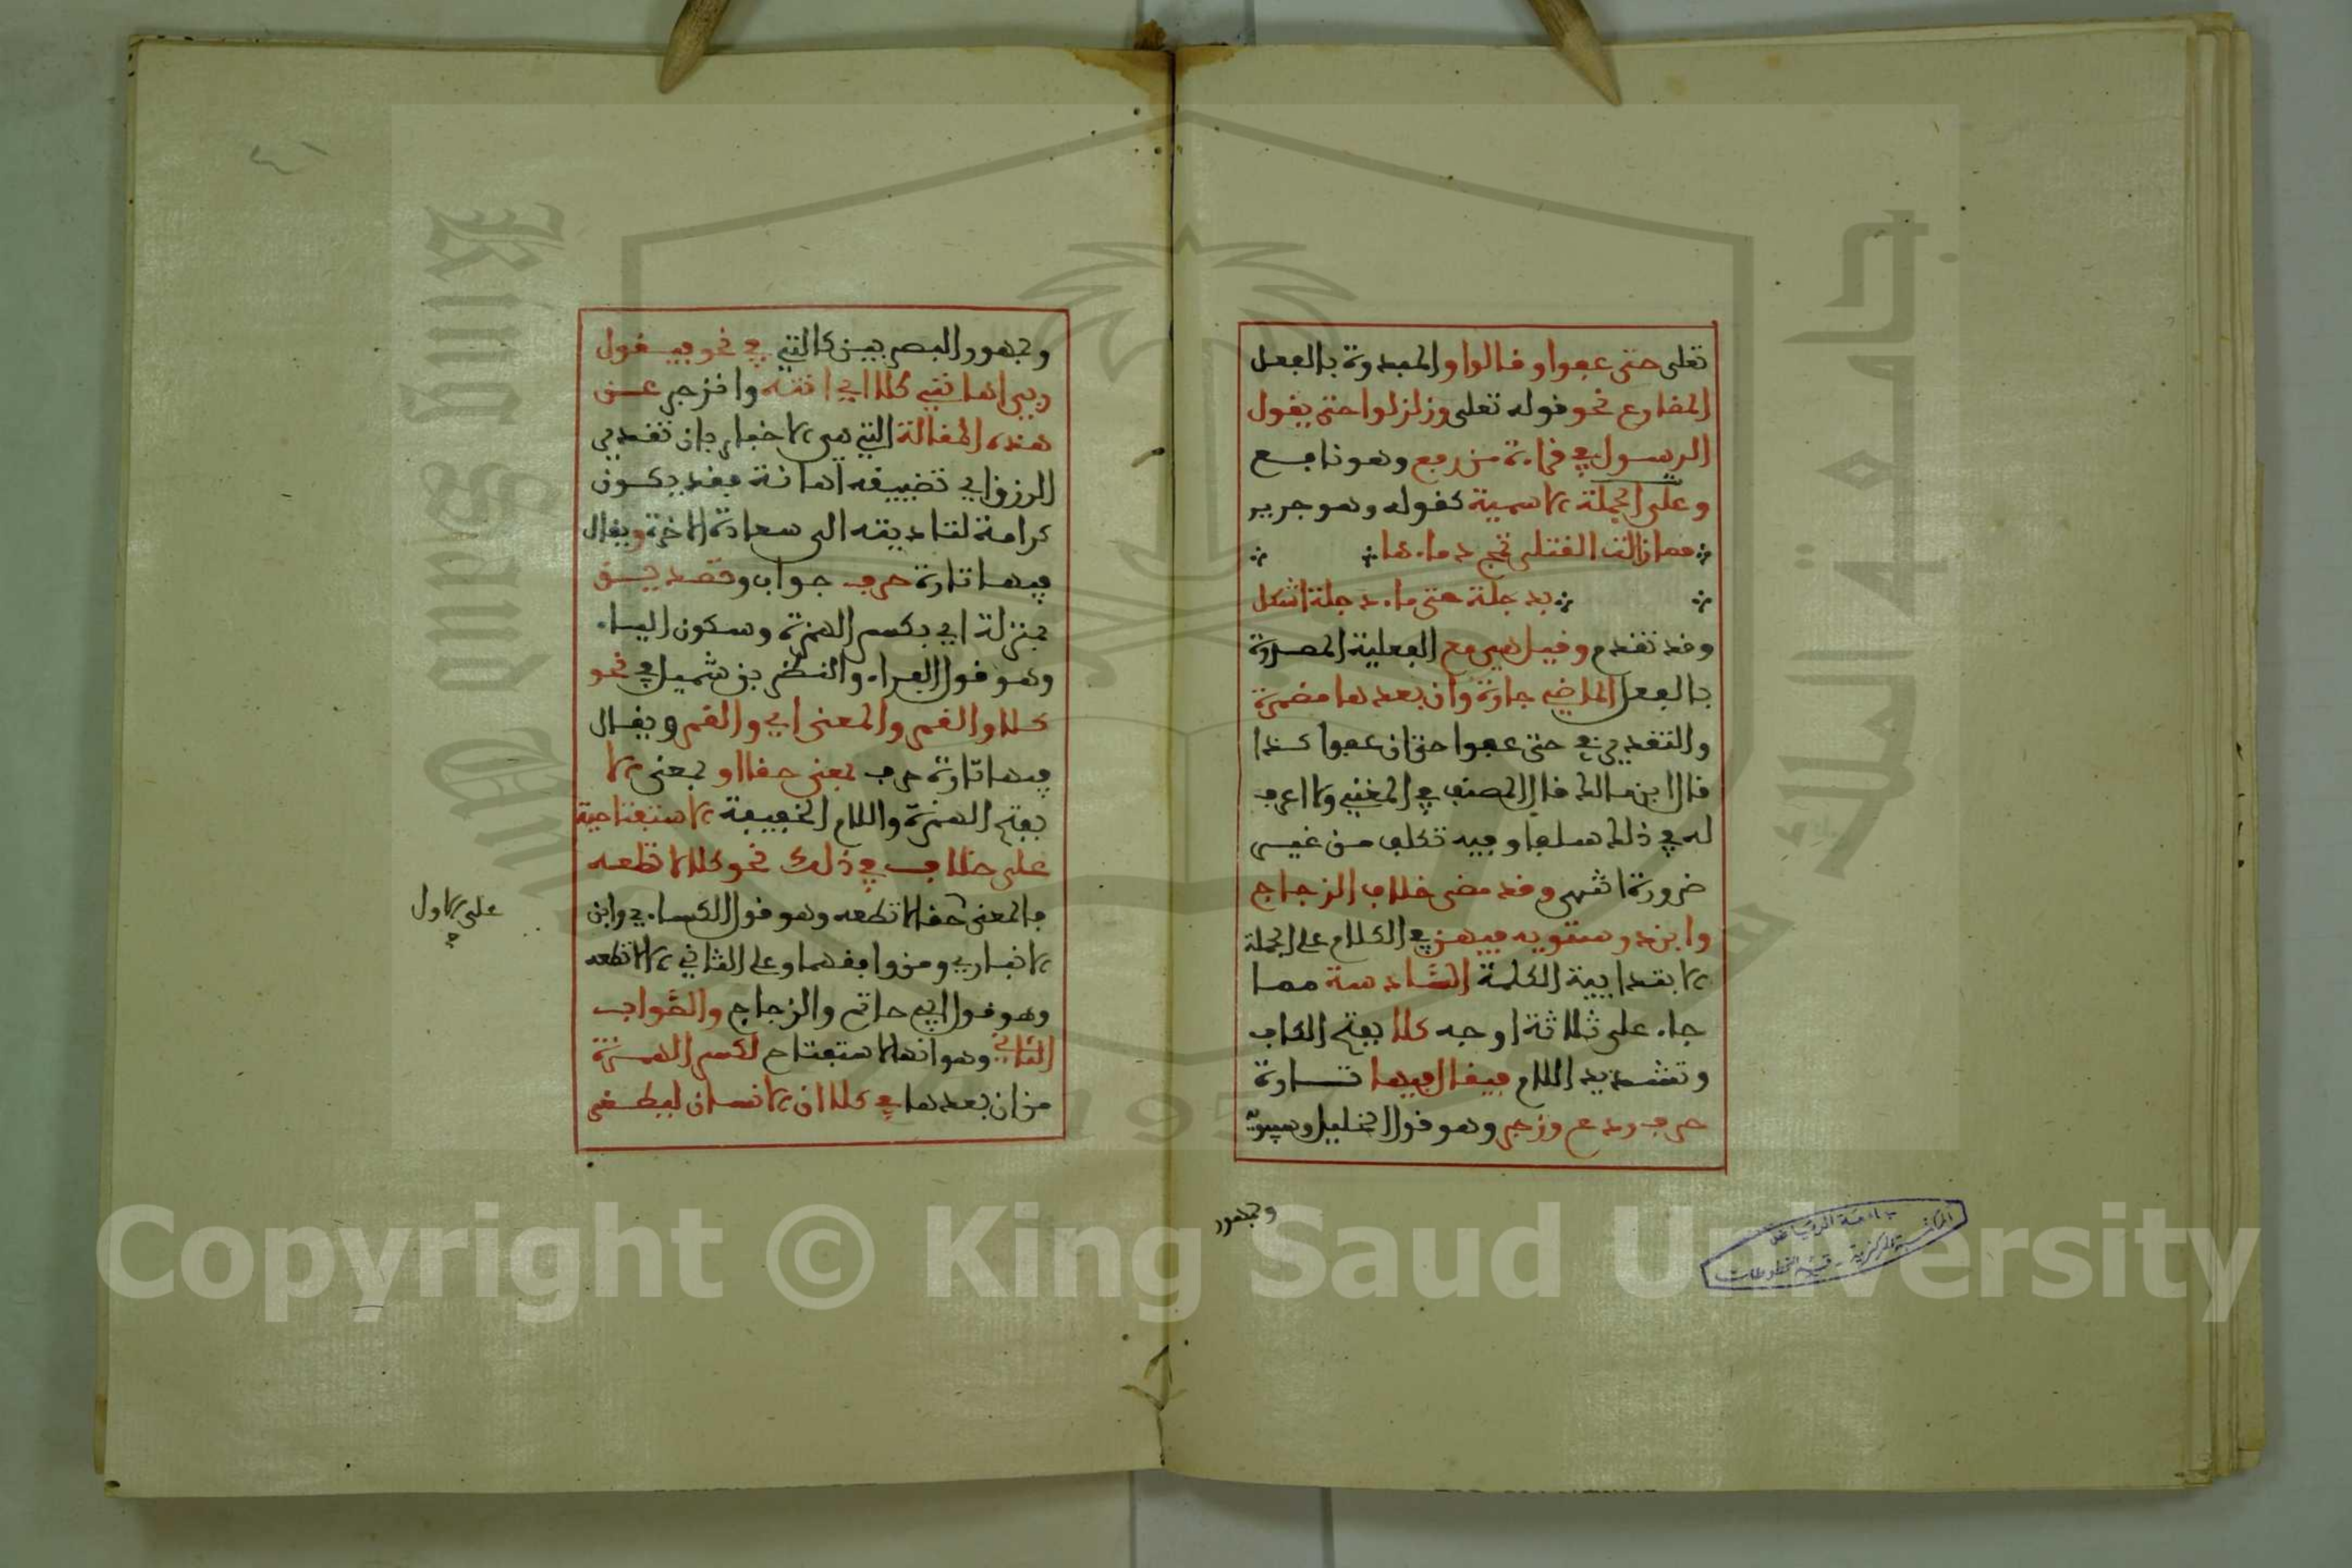 تعلى حتى عفوا وقالوا والمبدوة بالفعل
المضارع نحو قوله تعلى وزلزلوا حتى يقول
الرسول في قراءة من رفع وهو نافع
وعلى الجملة الاسمية كقوله وهو جرير
فما زالت القتلى تمج دماءها
بدجلة حتى ماء دجلة اشكل
وقد تقدم وقيل هي مع الفعلية المصدرة
بالفعل الماضي جارة وان بعدها مضمرة
والتقدير في حتى عفوا حتى ان عفوا كذا
قال ابن مالك قال المصنف في المغني ولا اعرف
له في ذلك سلفا وفيه تكلف من غير
ضرورة انتهى وقد مضى خلاف الزجاج
وابن درستويه فيهن في الكلام على الجملة
الابتدايية الكلمة السادسة مما
جاء على ثلاثة اوجه كلا بفتح الكاف
وتشديد اللام فيقال فيها تارة
حرف ردع وزجر وهو قول الخليل وسيبويه
وجمهور
وجمهور البصريين كالتي في نحو فيقول
ربي اهانني كلا اي انته وانزجر عن
هذه المقالة التي هي الاخبار بان تقدير
الرزق اي تضييقه اهانة فقد يكون
كرامة لتاديته الى سعادة الاخرة ويقال
فيها تارة حرف جواب وتصديق
بمنزلة اي بكسر الهمزة وسكون الياء
وهو قول الفراء والنضر بن شميل في نحو
كلا والقمر والمعنى اي والقمر ويقال
فيها تارة حرف بمعنى حقا او بمعنى الا
بفتح الهمزة واللام الخفيفة الاستفتاحية
على خلاف في ذلك نحو كلا لا تطعه
فالمعنى حقا لا تطعه وهو قول الكساءي وابن
الانباري ومن وافقهما وعلى الثاني الا لا تطعه
وهو قول ابي حاتم والزجاج والصواب
الثاني وهو انها للاستفتاح لكسر الهمزة
من ان بعدها في كلا ان الانسان ليطغى
على الاول
٤١
جامعة الرياض
المكتبة المركزية - قسم المخطوطات
Copyright © King Saud University